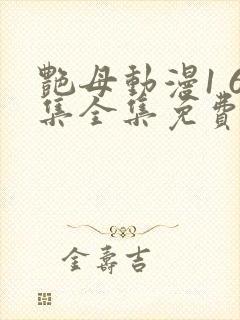 艷母動漫16
集全集免費
金壽吉